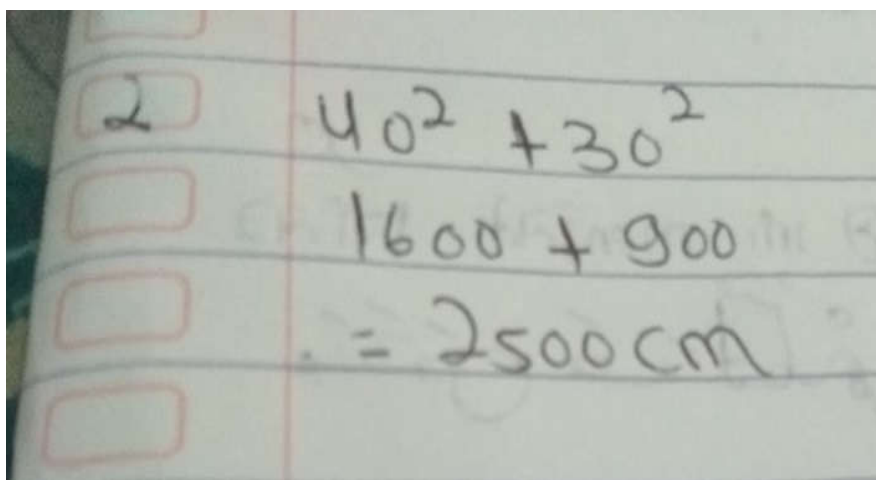 2 40² + 30²
1600 + 900
= 2500 cm